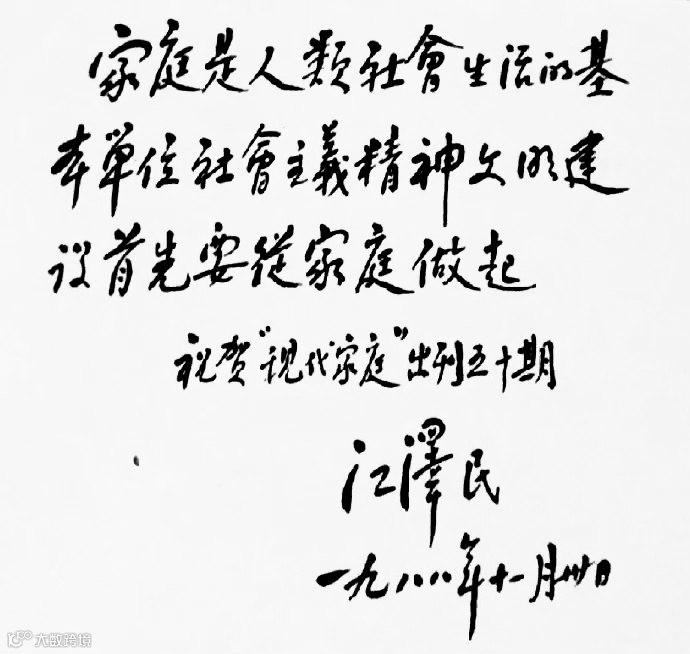 家庭是人類社會生活的基
本單位社會主義精神文明建
设首先要從家庭做起
祝贺“现代家庭”出刊五十期
江澤民
一九八八年十一月卅日
大数跨境